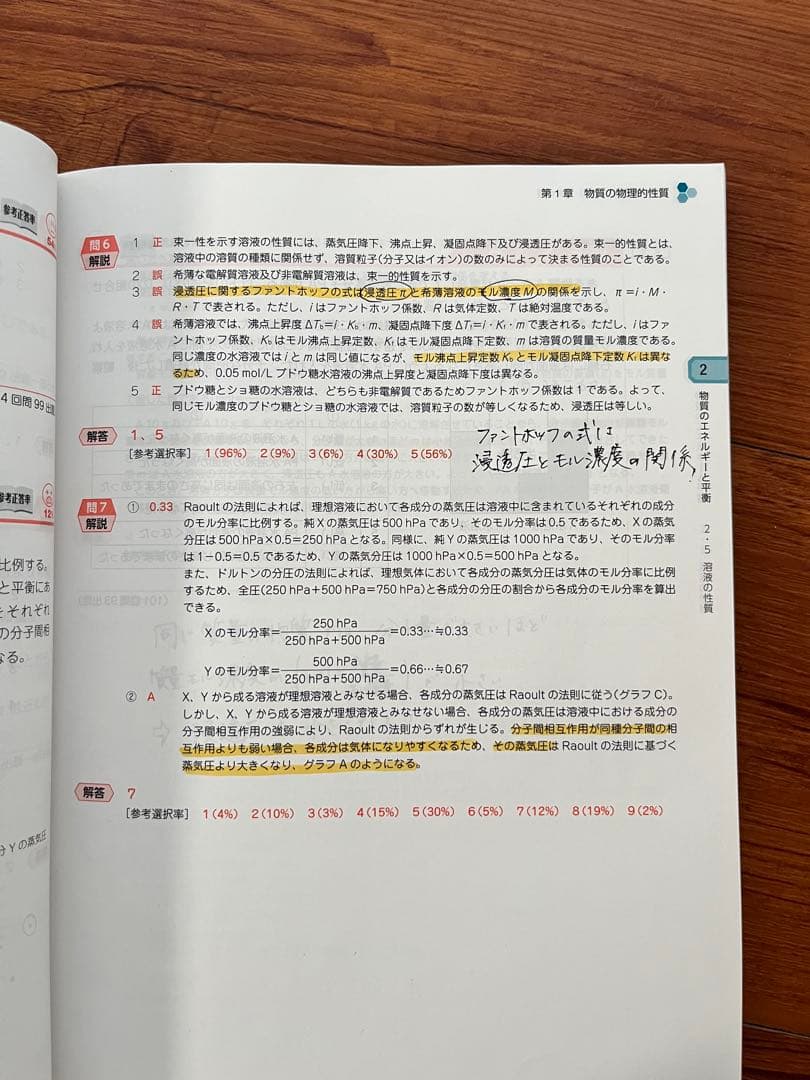 第1章 物質の物理的性質
参考正答率
問6
解説
1 正 束一性を示す溶液の性質には、蒸気圧降下、沸点上昇、凝固点降下及び浸透圧がある。束一的性質とは、
溶液中の溶質の種類に関係せず、溶質粒子(分子又はイオン)の数のみによって決まる性質のことである。
2 誤 希薄な電解質溶液及び非電解質溶液は、束一的性質を示す。
3 誤 浸透圧に関するファントホッフの式は浸透圧πと希薄溶液のモル濃度Mの関係を示し、π=i・M・
R・Tで表される。ただし、iはファントホッフ係数、Rは気体定数、Tは絶対温度である。
4 誤 希薄溶液では、沸点上昇度ΔTb=i・Kb・m、凝固点降下度ΔTf=i・Kf・mで表される。ただし、iはファ
ントホッフ係数、Kbはモル沸点上昇定数、Kfはモル凝固点降下定数、mは溶質の質量モル濃度である。
同じ濃度の水溶液ではiとmは同じ値になるが、モル沸点上昇定数Kbとモル凝固点降下定数Kfは異な
るため、0.05 mol/Lブドウ糖水溶液の沸点上昇度と凝固点降下度は異なる。
5 正 ブドウ糖とショ糖の水溶液は、どちらも非電解質であるためファントホッフ係数は1である。よって、
同じモル濃度のブドウ糖とショ糖の水溶液では、溶質粒子の数が等しくなるため、浸透圧は等しい。
解答 1、5
[参考選択率] 1(96%) 2(9%) 3(6%) 4(30%) 5(56%)
ファントホッフの式は
浸透圧とモル濃度の関係
2
物質のエネルギーと平衡
2・5 溶液の性質
4回問99出
参考正答率
問7
解説
① 0.33 Raoultの法則によれば、理想溶液において各成分の蒸気圧は溶液中に含まれているそれぞれの成分
のモル分率に比例する。純Xの蒸気圧は500 hPaであり、そのモル分率は0.5であるため、Xの蒸気
分圧は500 hPa×0.5=250 hPaとなる。同様に、純Yの蒸気圧は1000 hPaであり、そのモル分率
は1-0.5=0.5であるため、Yの蒸気分圧は1000 hPa×0.5=500 hPaとなる。
また、ドルトンの分圧の法則によれば、理想気体において各成分の蒸気分圧は気体のモル分率に比例
するため、全圧(250 hPa+500 hPa=750 hPa)と各成分の分圧の割合から各成分のモル分率を算出
できる。
Xのモル分率=250 hPa/250 hPa+500 hPa=0.33…≒0.33
Yのモル分率=500 hPa/250 hPa+500 hPa=0.66…≒0.67
② A X、Yから成る溶液が理想溶液とみなせる場合、各成分の蒸気圧はRaoultの法則に従う(グラフC)。
しかし、X、Yから成る溶液が理想溶液とみなせない場合、各成分の蒸気圧は溶液中における成分の
分子間相互作用の強弱により、Raoultの法則からずれが生じる。分子間相互作用が同種分子間の相
互作用よりも弱い場合、各成分は気体になりやすくなるため、その蒸気圧はRaoultの法則に基づく
蒸気圧より大きくなり、グラフAのようになる。
解答 7
[参考選択率] 1(4%) 2(10%) 3(3%) 4(15%) 5(30%) 6(5%) 7(12%) 8(19%) 9(2%)
比例する。
と平衡にあ
をそれぞれ
の分子間相
なる。
分Yの蒸気圧